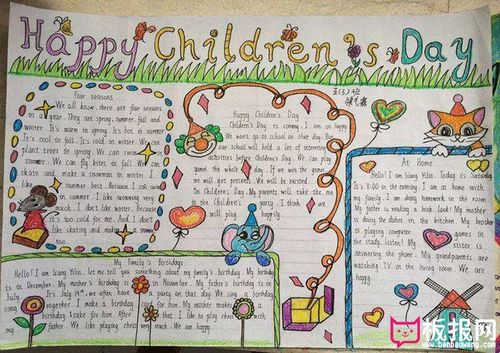 Happy Children's Day
Four seasons
We all know, there are four seasons
on a year. They are spring, summer, fall and
winter. It's warm in spring. It's hot in summer
It's cool in fall. It's cold in winter. We can
plant trees in spring. We can swimming in
We can fly kites in fall. We can
skate and make a snowman in winter. I
like summer best. Because I can
swim in summer. I like swimming very
much. I don't like winter. Because
it's too cold for me. And I don't
like skating and making a
snowman too.
Happy Children's Day
Children's Day is coming. I am so happy
We won't go to school on that day. But
our school will hold a lot of interesting
activities before Children's Day. We can play
games the whole day. If we win the games
we will get presents. We will be excited.
On Children's Day, My parents will take me to
the Children's Park. I think I
will play happily.
At Home
Hello! I am Liang Yilin. Today is Saturday.
It's 8:00 in the evening. I am at home with
my family. I am doing homework in the room
My father is reading a book. Look! My mother
is doing the dishes in the kitchen. My brother
is playing computer games in
the study. Listen! My sister is
answering the phone. My grandparents are
watching TV in the living room. We are
happy.
My Family's Birthdays
Hello! I am Liang Yilin. let me tell you something about my family's birthday. My birthday
is in December. My mother's birthday is in November. My father's birthday is in
July. It's July 19th. we often have a party on that day. We sing a birthday
song together. I make a birthday card for him. My mother makes
birthday cake for him. After that, I like to play chess with
my father. We like playing chess very much. We are happy.
板报网
www.banbaowang.com